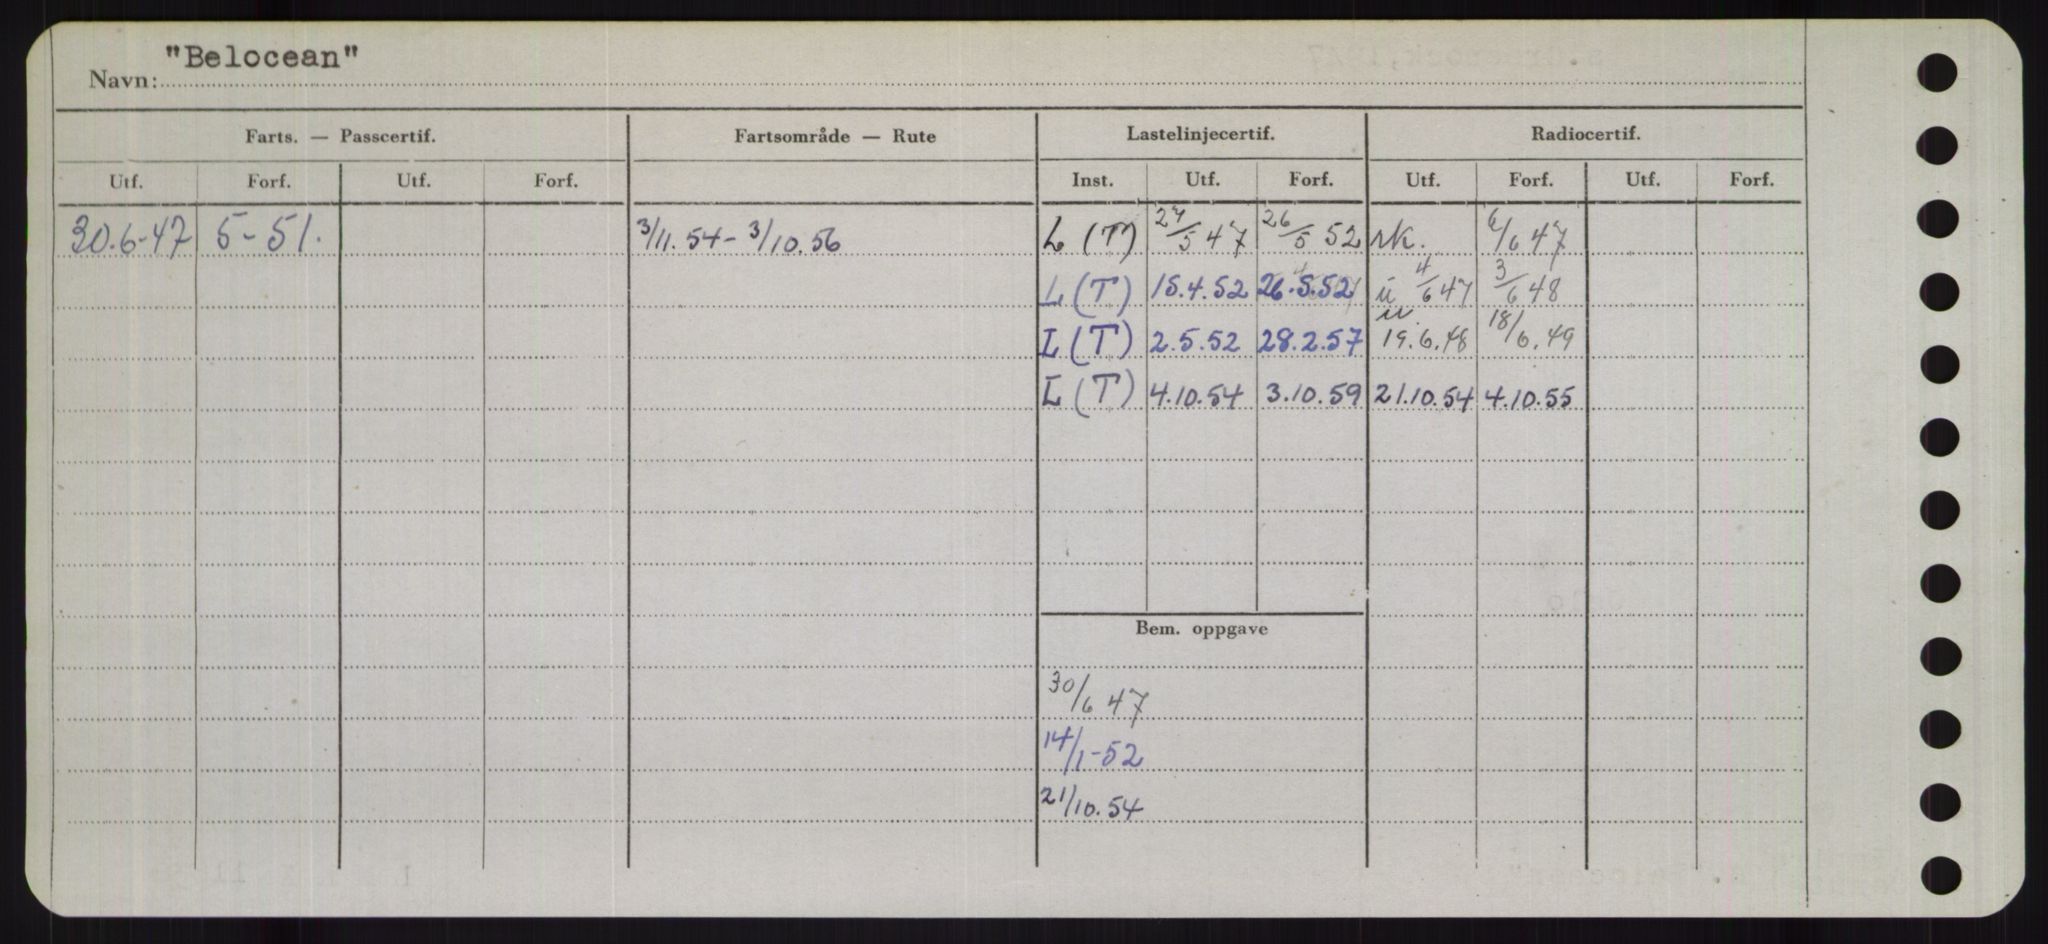 "Belocean"
Navn:
Farts. — Passcertif. Fartsområde — Rute Lastelinjecertif. Radiocertif.
Utf. Forf. Utf. Forf. Inst. Utf. Forf. Utf. Forf. Utf. Forf.
30.6-47 5-51. 3/11.54-3/10.56 L (T) 27/5 47 26/5 52 rk. 6/6 47
L (T) 15.4.52 26.5.52 4/6 47 3/6 48
L (T) 2.5.52 28.2.57 19.6.48 18/6.49
L (T) 4.10.54 3.10.59 21.10.54 4.10.55
Bem. oppgave
30/6 47
14/1-52
21/10.54